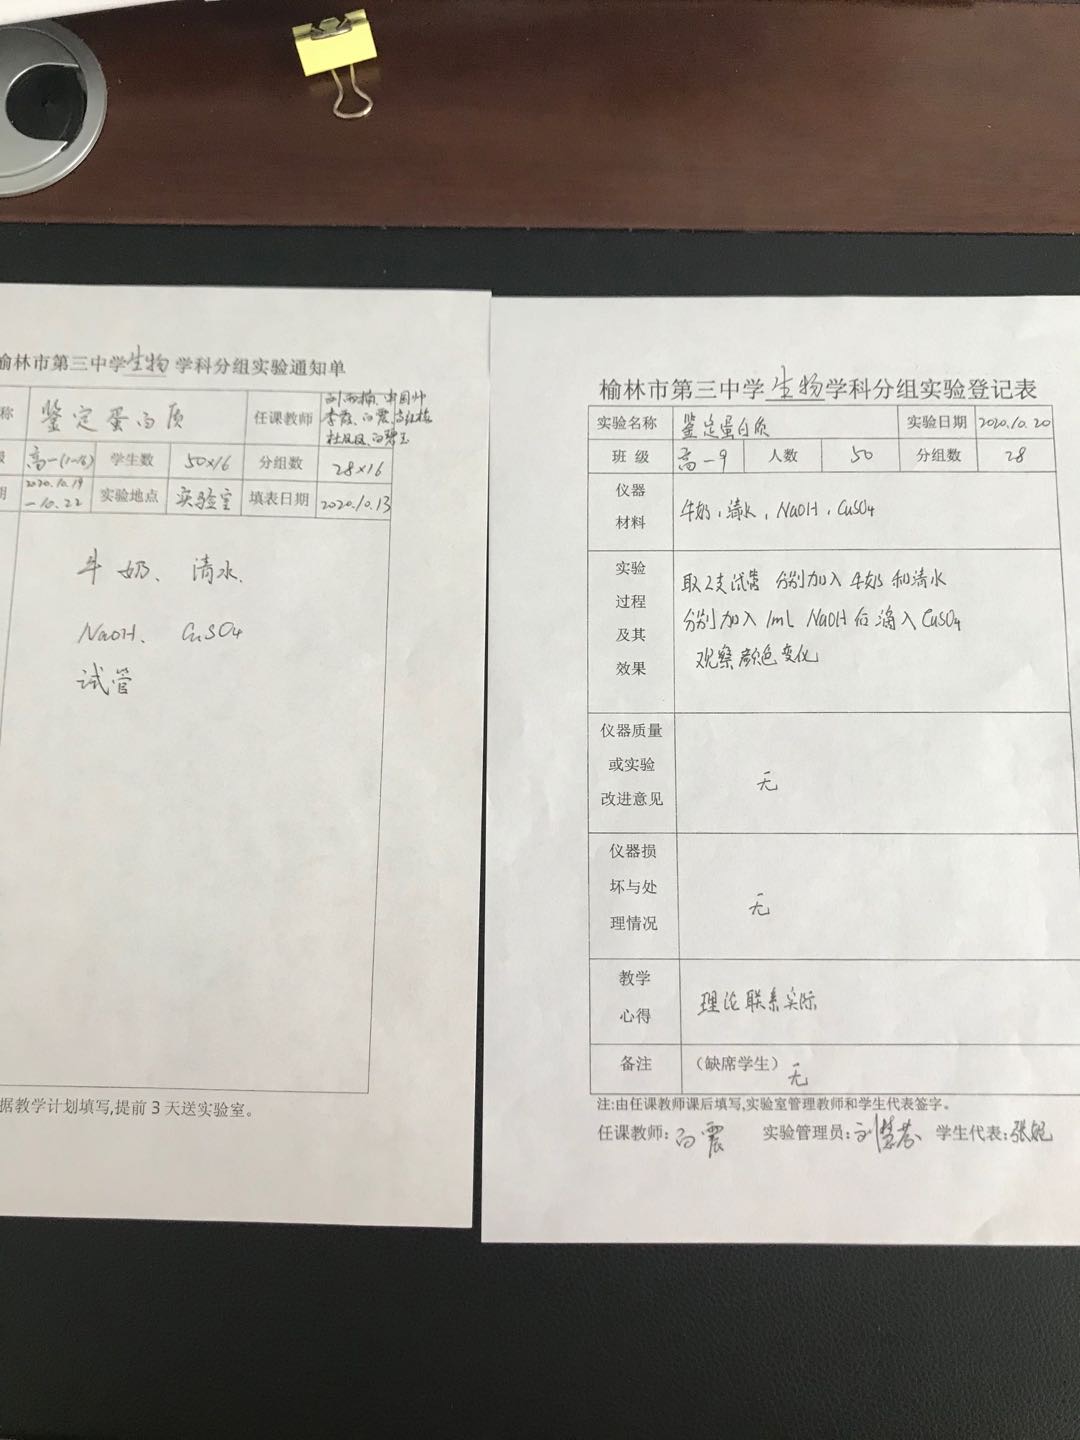 榆林市第三中学生物学科分组实验通知单
称 鉴定蛋白质 任课教师
李霞、白震、高红梅
杜凤凤、白碧玉
级 高一(1~16) 学生数 50×16 分组数 28×16
期 2020.10.19 —10.22 实验地点 实验室 填表日期 2020.10.13
牛奶、清水、
NaOH、CuSO4
试管
据教学计划填写,提前3天送实验室。
榆林市第三中学生物学科分组实验登记表
实验名称 鉴定蛋白质 实验日期 2020.10.20
班 级 高一9 人数 50 分组数 28
仪器
材料
牛奶,清水,NaOH,CuSO4
实验
过程
及其
效果
取2支试管 分别加入牛奶和清水
分别加入1mL NaOH后滴入CuSO4
观察颜色变化
仪器质量
或实验
改进意见
无
仪器损
坏与处
理情况
无
教学
心得
理论联系实际
备注 (缺席学生) 无
注:由任课教师课后填写,实验室管理教师和学生代表签字。
任课教师:白震 实验管理员:刘慧芬 学生代表:张妮